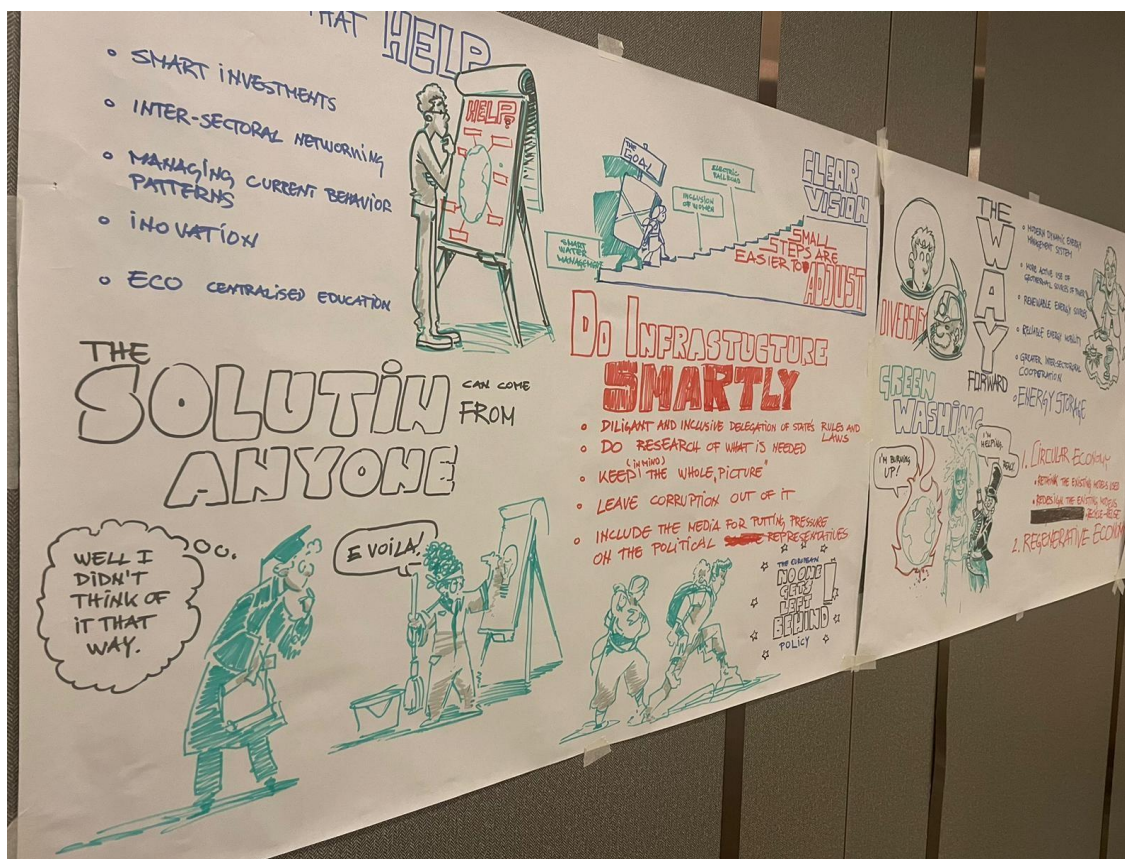 THAT HELP
• SMART INVESTMENTS
• INTER-SECTORAL NETWORNING
• MANAGING CURRENT BEHAVIOR
PATTERNS
• INOVATION
• ECO CENTRALISED EDUCATION
HELP!
THE
SOLUTIN
CAN COME
FROM
ANYONE
WELL I
DIDN'T
THINK OF
IT THAT
WAY.
E VOILA!
THE
GOAL
SMART
WATER
MANAGEMENT
INCLUSION
OF WOMEN
ELECTRIC
RAILROAD
CLEAR
VISION
SMALL
STEPS ARE
EASIER TO
ADJUST
DO INFRASTUCTURE
SMARTLY
• DILIGANT AND INCLUSIVE DELEGATION OF STATE'S RULES AND
LAWS
• DO RESEARCH OF WHAT IS NEEDED
• KEEP (IN MIND) THE WHOLE "PICTURE"
• LEAVE CORRUPTION OUT OF IT
• INCLUDE THE MEDIA FOR PUTTING PRESSURE
ON THE POLITICAL REPRESENTATIVES
THE EUROPEAN
NO ONE
GETS
LEFT
BEHIND!
POLICY
DIVERSIFY
THE
WAY
FORWARD
• MODERN DYNAMIC ENERGY
MANAGEMENT SYSTEM
• MORE ACTIVE USE OF
GEOTHERMAL SOURCES OF
• RENEWABLE ENERGY SOURCES
• RELIABLE ENERGY MOBILITY
• GREATER INTER-SECTORAL
COOPERATION
• ENERGY STORAGE
GREEN
WASHING
I'M BURNING
UP!
I'M
HELPING
1. CIRCULAR ECONOMY
• RETHINK THE EXISTING MODELS USED
• REDESIGN THE EXISTING MODELS
2. REGENERATIVE ECONOM